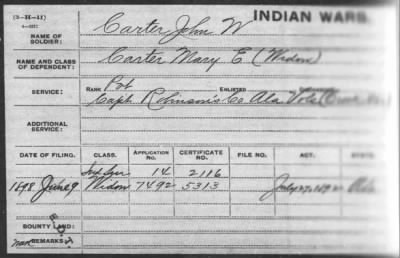 (3-II-11)
INDIAN WARS.
NAME OF SOLDIER: Carter John W
NAME AND CLASS OF DEPENDENT: Carter Mary E (Widow)
SERVICE: RANK Pvt ENLISTED
Capt. Robinson's Co Ala Vols
ADDITIONAL SERVICE:
DATE OF FILING. CLASS. APPLICATION NO. CERTIFICATE NO. FILE NO. ACT. STATE.
14 2116
1898 June 9 Widow 7492 5313 July 27, 1892 Ala
BOUNTY LAND:
REMARKS: